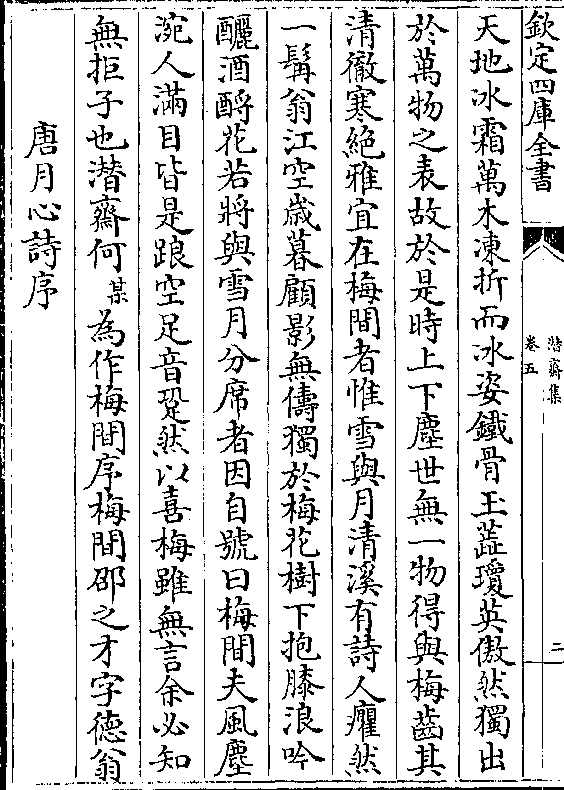 欽定四庫全書
潛齋集
卷五
二
天地冰霜萬木凍折而冰姿鐵骨玉蕋瓊英傲然獨出
於萬物之表故於是時上下塵世無一物得與梅齒其
清徹寒絶雅宜在梅間者惟雪與月清溪有詩人癯然
一髯翁江空歳暮顧影無儔獨於梅花樹下抱膝浪吟
釃酒酹花若將與雪月分席者因自號曰梅間夫風塵
涴人滿目皆是踉空足音跫然以喜梅雖無言余必知
無拒子也潛齋何某為作梅間序梅間邵之才字德翁
唐月心詩序